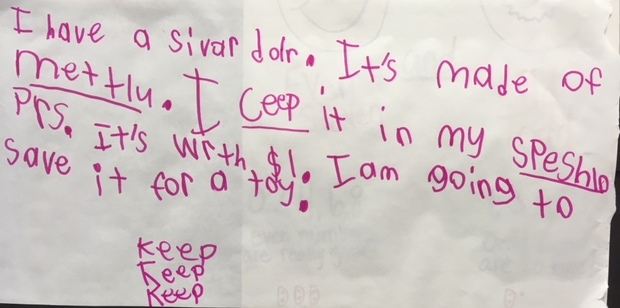 I have a sivar dolr. It's made of
mettlu. I ceep it in my speshlo
prs. It's wrth $1. I am going to
save it for a toy.
keep
keep
keep